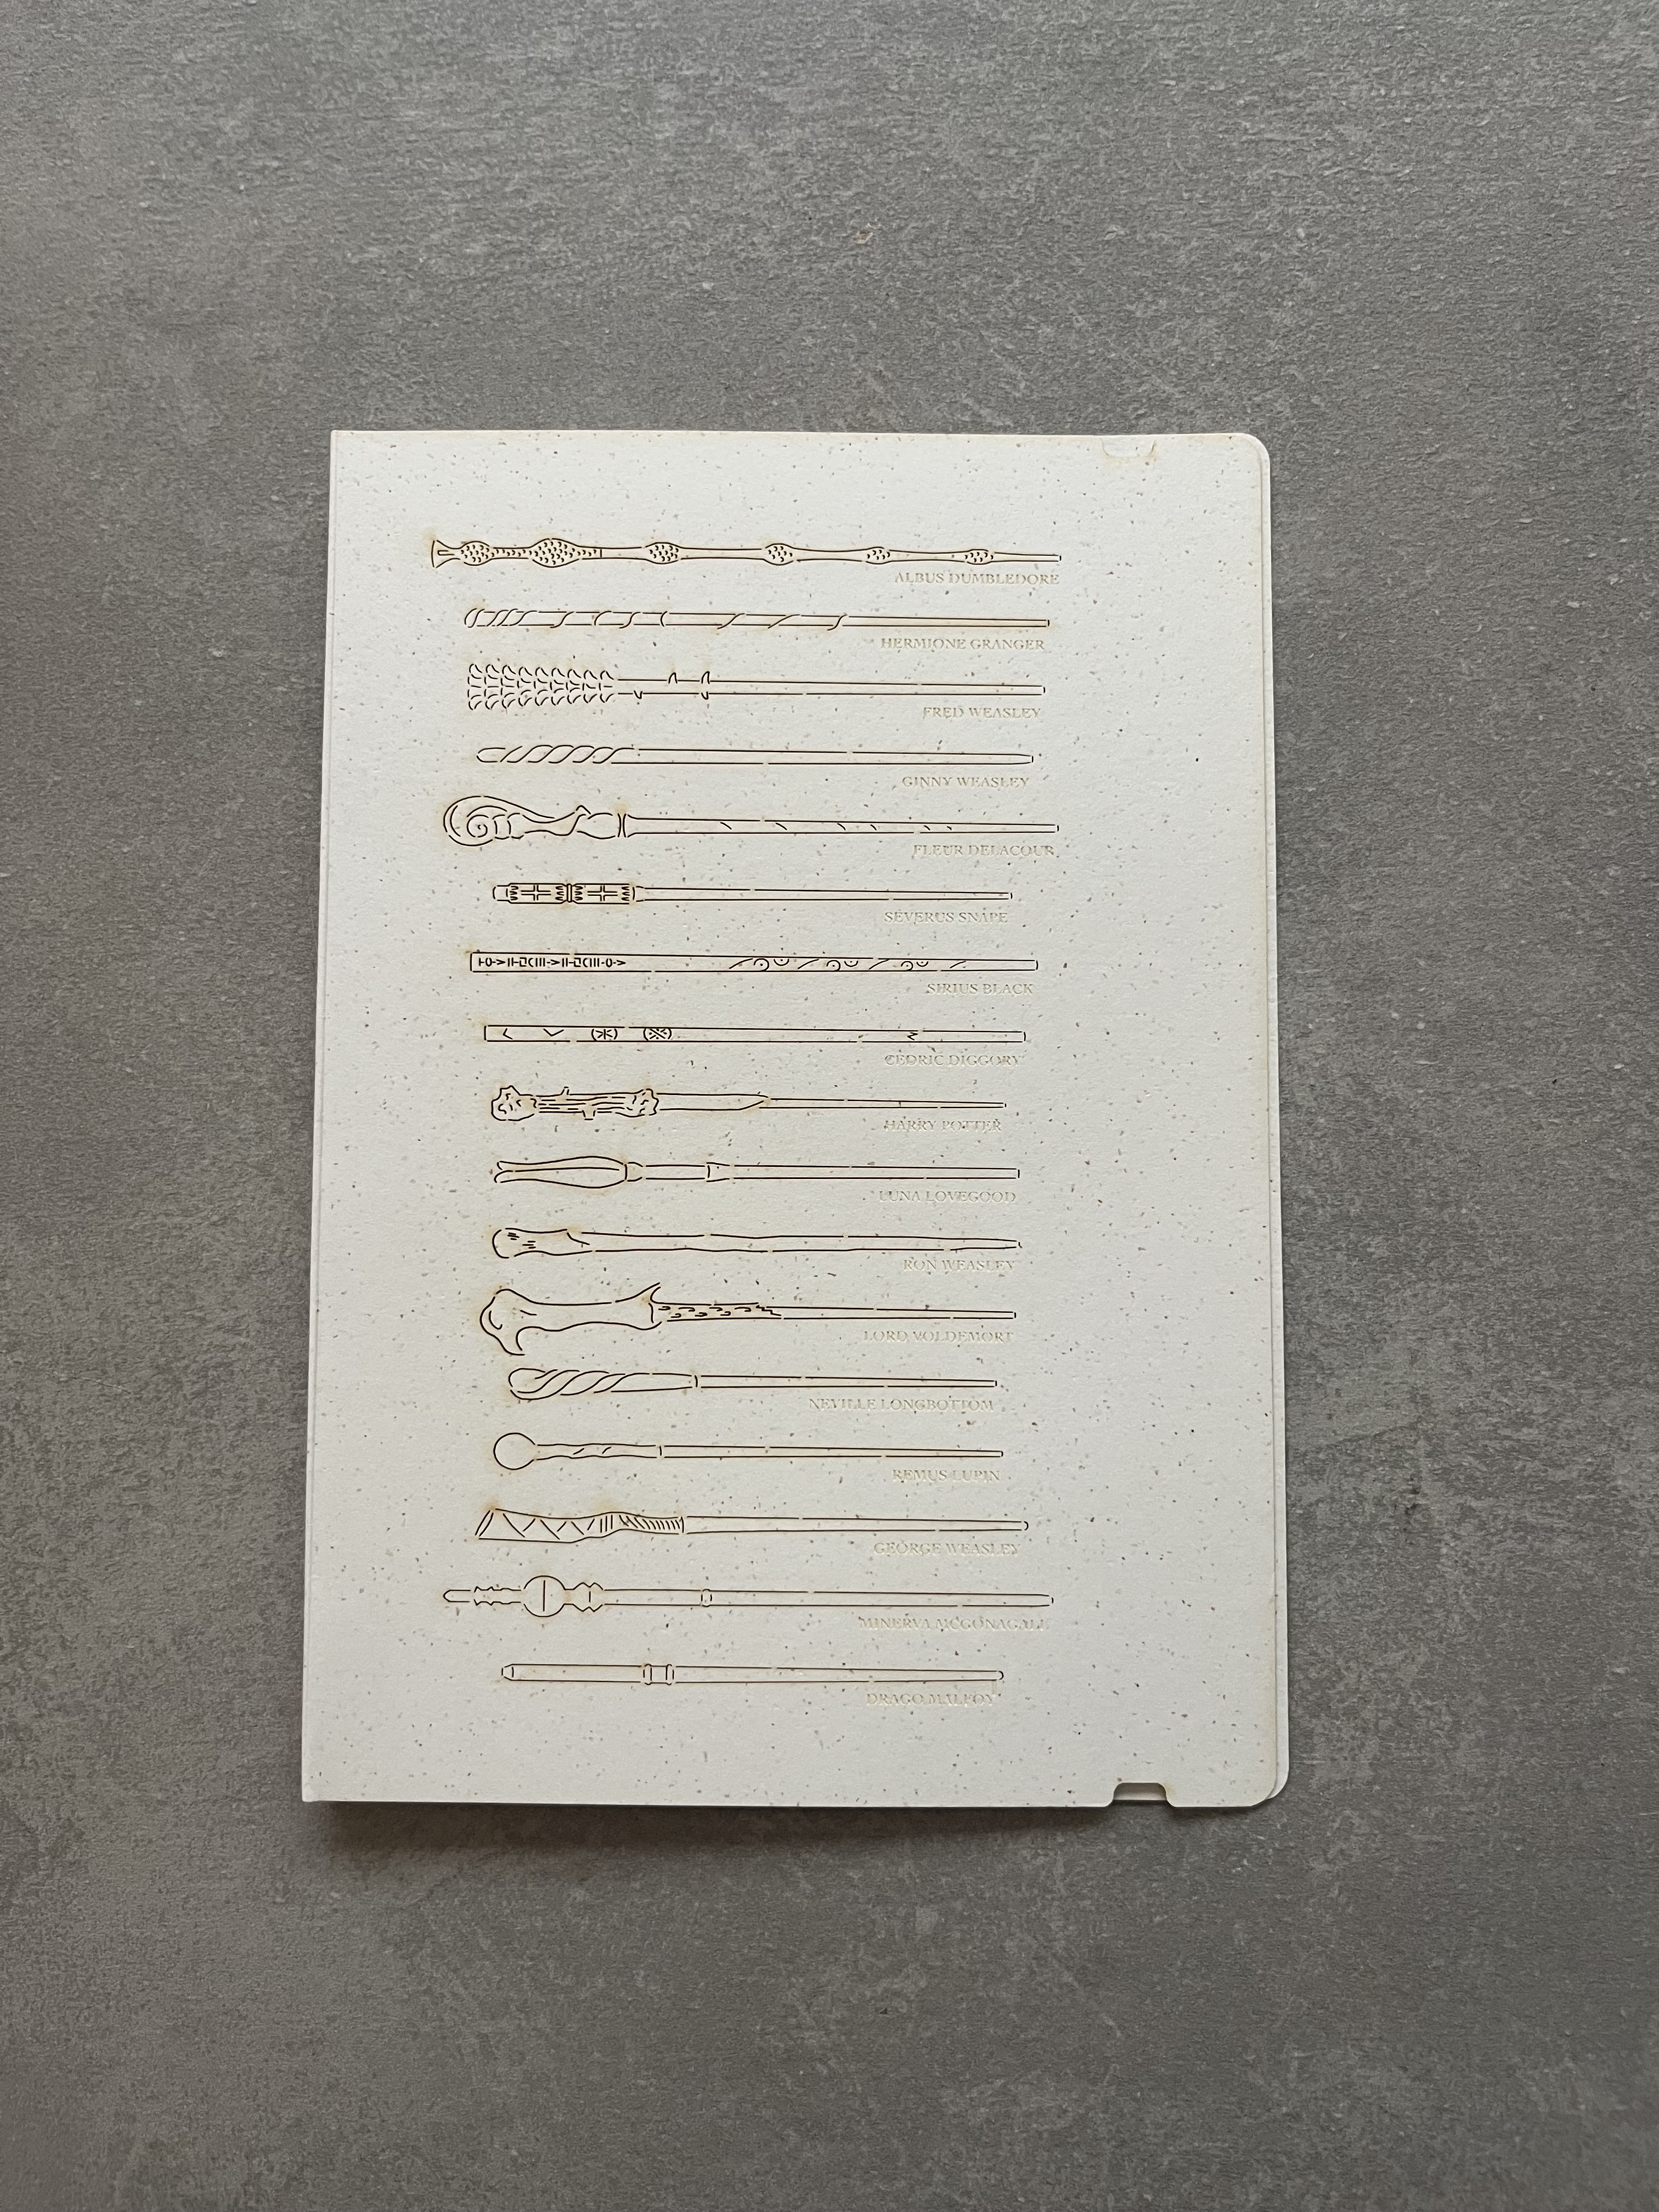 ALBUS DUMBLEDORE
HERMIONE GRANGER
FRED WEASLEY
GINNY WEASLEY
FLEUR DELACOUR
SEVERUS SNAPE
SIRIUS BLACK
CEDRIC DIGGORY
HARRY POTTER
LUNA LOVEGOOD
RON WEASLEY
LORD VOLDEMORT
NEVILLE LONGBOTTOM
REMUS LUPIN
GEORGE WEASLEY
MINERVA MCGONAGALL
DRAGO MALFOY